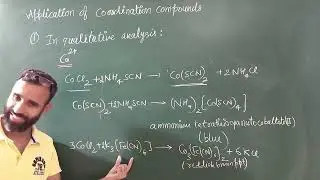 Application of Coordination Compounds
① In qualitative analysis :
Co²⁺
CoCl₂ + 2NH₄SCN → Co(SCN)₂ + 2NH₄Cl
Co(SCN)₂ + 2NH₄SCN → (NH₄)₂[Co(SCN)₄]
ammonium
(blue)
3CoCl₂ + 2K₃[Fe(CN)₆] → Co₃[Fe(CN)₆]₂ + 6KCl
(reddish brown ppt)